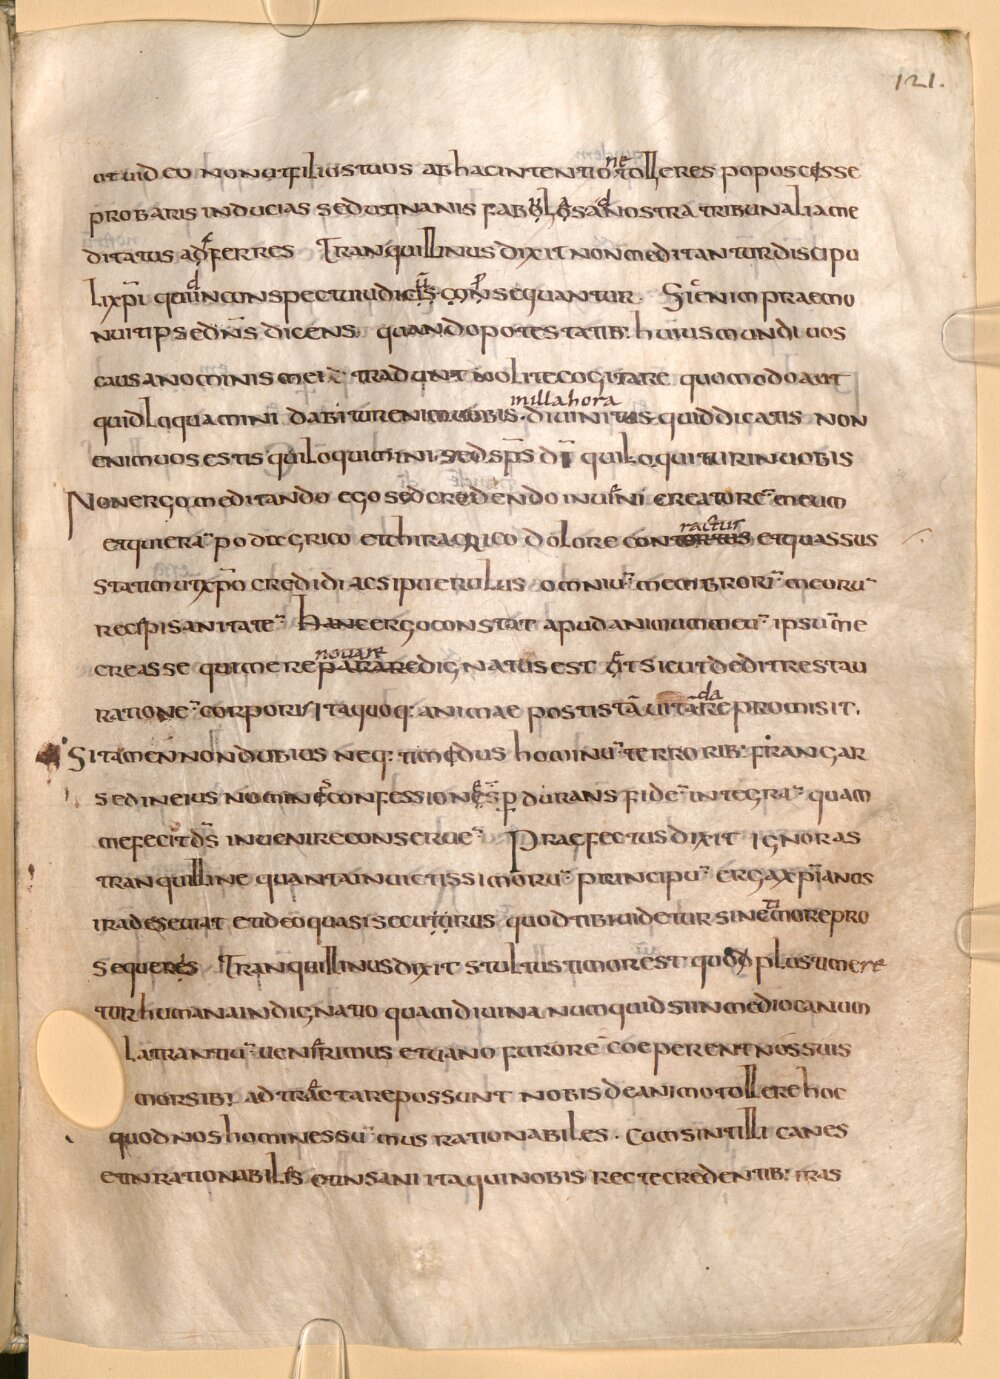 121.
ut uideo non ut filios tuos ab hac intentione tolleres poposcisse
probaris inducias sed ut inanis fabulas ad nostra tribunalia me
ditatus adferres Tranquillinus dixit non meditantur discipu
li xp̄i quid in conspectu iudicis consequantur. Sic enim praemo
nuit ipse dn̄s dicens, quando potestatib: huius mundi uos
causa nominis mei tradunt nolite cogitare quomodo aut
quid loquamini dabitur enim uobis in illa hora diuinitus quid dicatis non
enim uos estis qui loquimini, sed sp̄s dī qui loquitur in uobis
Non ergo meditando ego sed credendo inueni creatore¯ meum
et qui era¯ podagrico et chiragrico dolore contractus et quassus
statim ut xp̄o credidi ac si puerulus omniu¯ membroru¯ meoru¯
recepi sanitate¯ Hanc ergo constat apud animum meu¯ ipsu¯ me
creasse qui me renouare dignatus est et sicut dedit restau
ratione¯ corporis ita quoq: animae post ista¯ uita¯ dare promisit.
Si tamen non dubius neq: timidus hominu¯ terrorib: frangar
sed in eius nominis confessione p̱durans fide¯ integra¯ quam
me fecit d̄s inuenire conserue¯ Praefectus dixit ignoras
tranquilline quanta inuictissimoru¯ principu¯ erga xp̄ianos
ira deseuiat et ideo quasi securus quod tibi uidetur sine timore pro
sequeris Tranquillinus dixit stultus timor est quo plus timere
tur humana indignatio quam diuina numquid si in medio canum
latrantiu¯ uenerimus et uano furore coeperent nos suis
morsib: adtractare possunt nobis de animo tollere hoc
quod nos homines su¯mus rationabiles. Cum sint illi canes
et inrationabiles et insani ita qui nobis recte credentib: iras